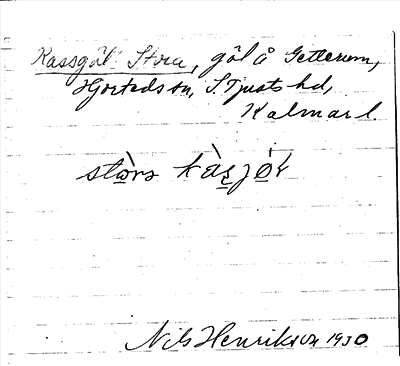 Kassgöl Stora, göl å Getterum,
Hjorteds sn, S Tjusts hd,
Kalmar l.
stὼrə kàsjö́l
Nils Henrikson 1930